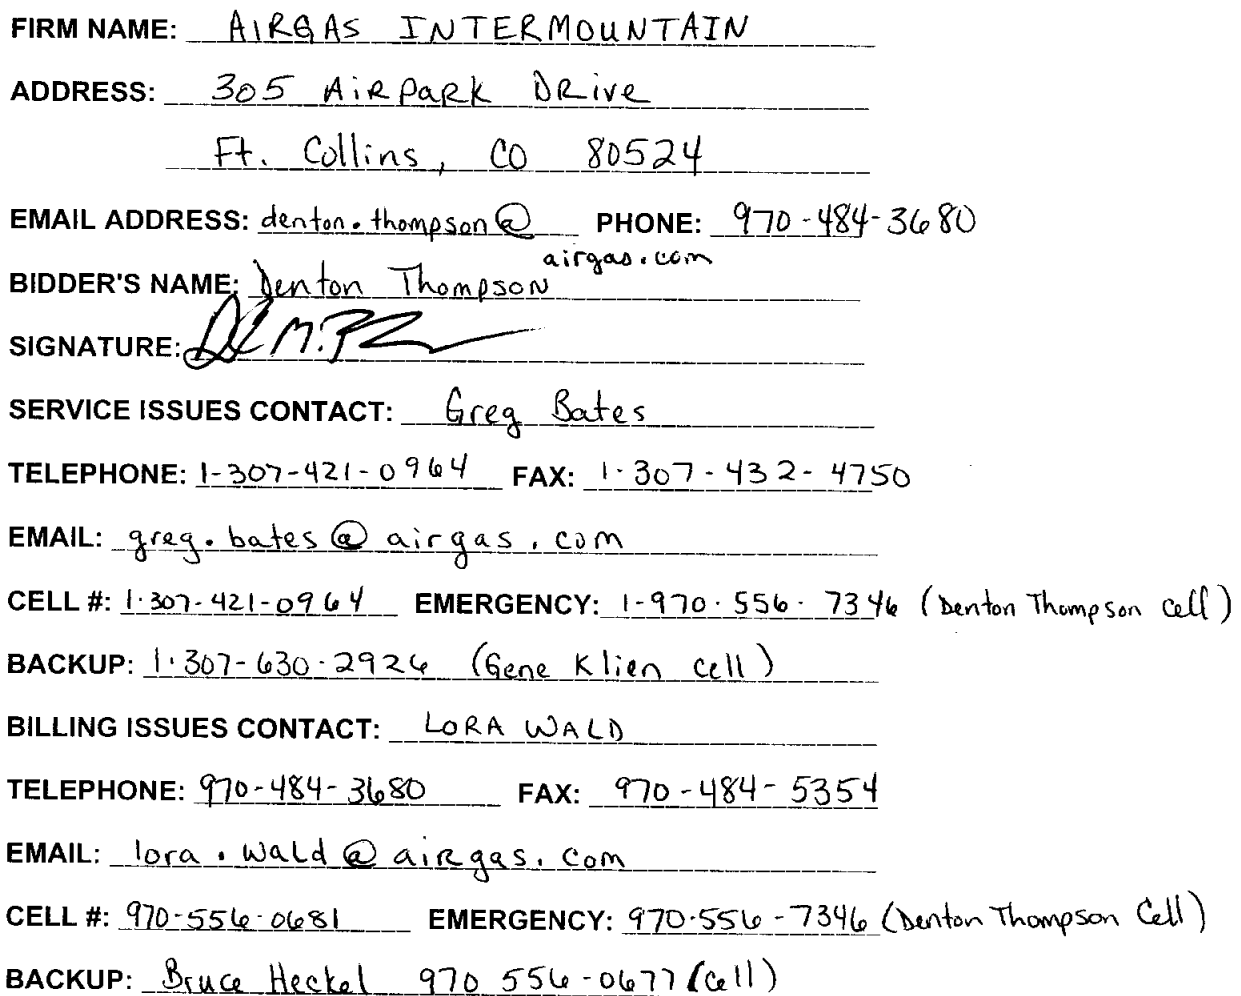 FIRM NAME: AIRGAS INTERMOUNTAIN
ADDRESS: 305 AiRPaRk DRive
Ft. Collins, CO 80524
EMAIL ADDRESS: denton.thompson@ PHONE: 970-484-3680
airgas.com
BIDDER'S NAME: Denton Thompson
SIGNATURE:
SERVICE ISSUES CONTACT: Greg Bates
TELEPHONE: 1-307-421-0964 FAX: 1-307-432-4750
EMAIL: greg.bates@airgas.com
CELL #: 1-307-421-0964 EMERGENCY: 1-970-556-7346 (Denton Thompson Cell)
BACKUP: 1-307-630-2926 (Gene Klien Cell)
BILLING ISSUES CONTACT: LORA WALD
TELEPHONE: 970-484-3680 FAX: 970-484-5354
EMAIL: lora.wald@aiRgas.com
CELL #: 970-556-0681 EMERGENCY: 970-556-7346 (Denton Thompson Cell)
BACKUP: Bruce Heckel 970 556-0677 (Cell)